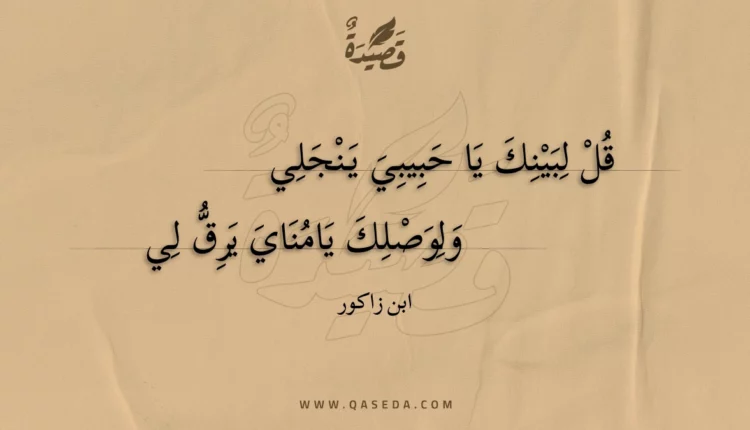 قَصِيدَةٌ
قُلْ لِبَيْنِكَ يَا حَبِيبِيَ يَنْجَلِي
وَلِوَصْلِكَ يَامُنَايَ يَرِقُّ لِي
ابن زاكور
WWW.QASEDA.COM